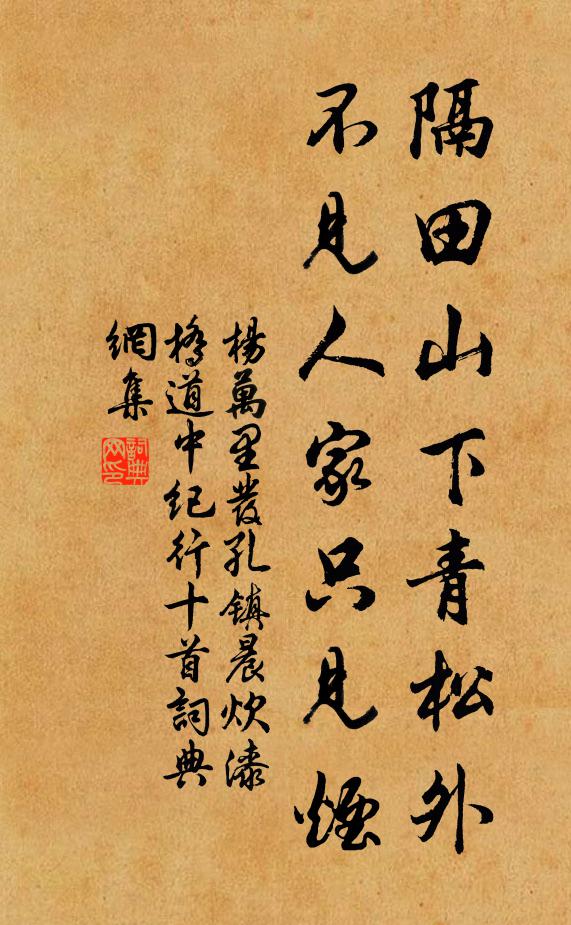 隔田山下青松外
不見人家只見煙
楊萬里發孔鎮晨炊漆
橋道中紀行十首詞典
網集
詞典
网印